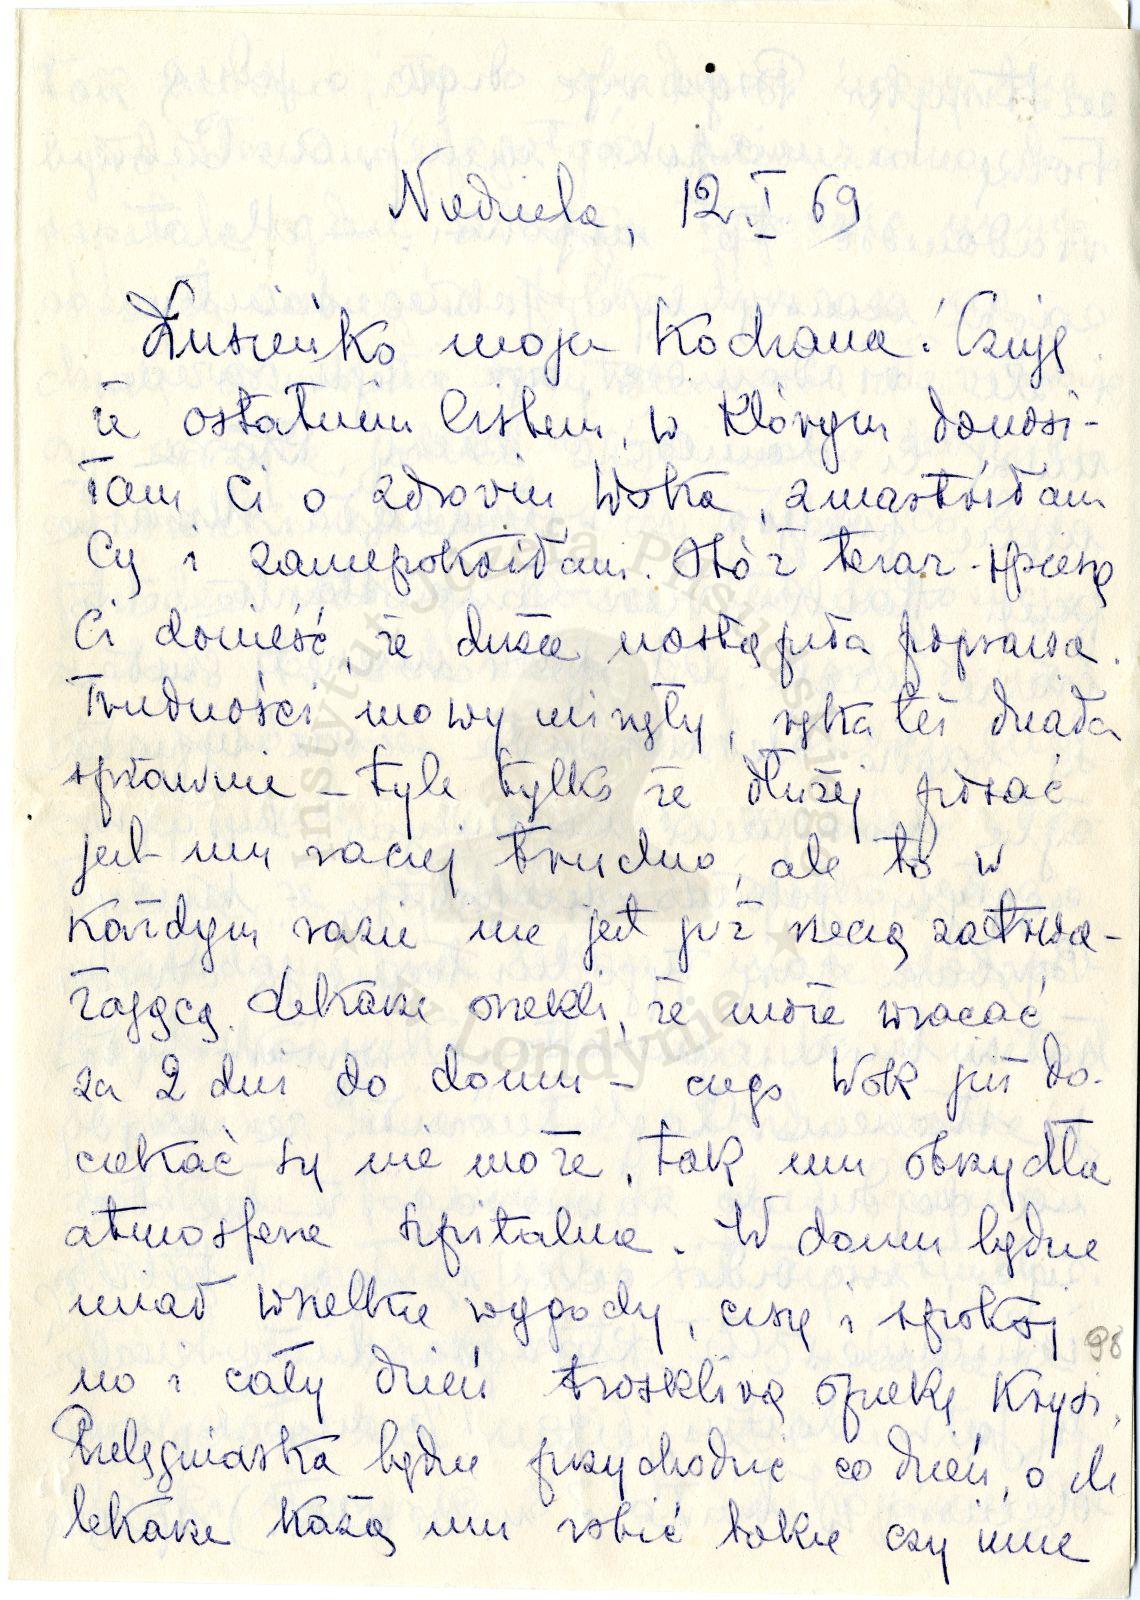 Niedziela, 12.I.69
Zusieńko moja Kochana! Czuję
że ostatnim listem, w którym donosi-
łam Ci o zdrowiu Woka, zmartwiłam
Cię i zaniepokoiłam. Otóż teraz spieszę
Ci donieść, że duża nastąpiła poprawa.
Trudności mowy minęły, ręka też działa
sprawnie – tyle tylko że dłużej pisać
jest mu raczej trudno, ale to w
każdym razie nie jest już rzeczą zatrwa-
żającą. Lekarze orzekli, że może wracać
za 2 dni do domu – czego Wok już do-
czekać się nie może, tak mu obrzydła
atmosfera szpitalna. W domu będzie
miał wszelkie wygody, ciszę i spokój
no i cały dzień troskliwą opiekę Krysi.
Pielęgniarka będzie przychodzić co dzień, o ile
lekarze każą mu robić takie czy inne
98
Instytut Józefa Piłsudskiego
w Londynie